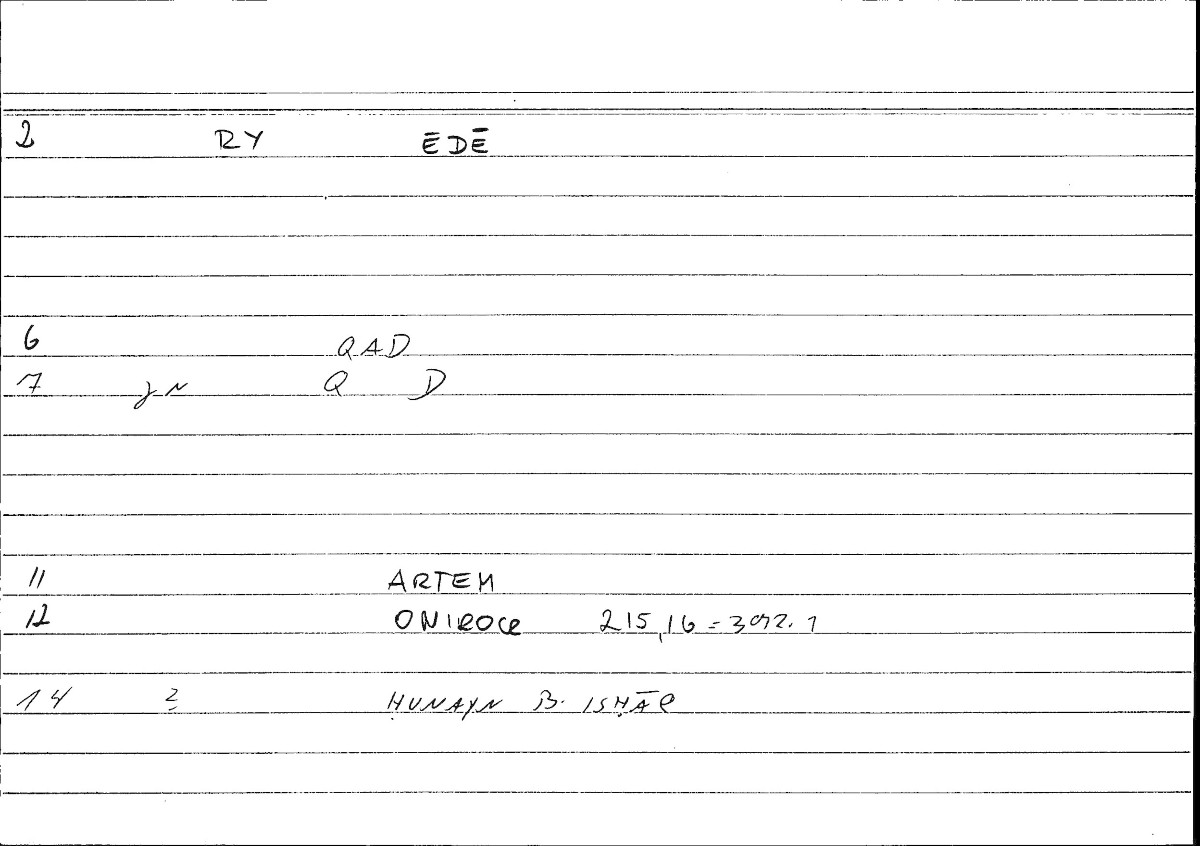 2 RY ĒDĒ
6 QAD
7 yN Q D
11 ARTEM
12 ONIROCR 215,16=392.1
14 2 ḤUNAYN B. ISḤĀQ